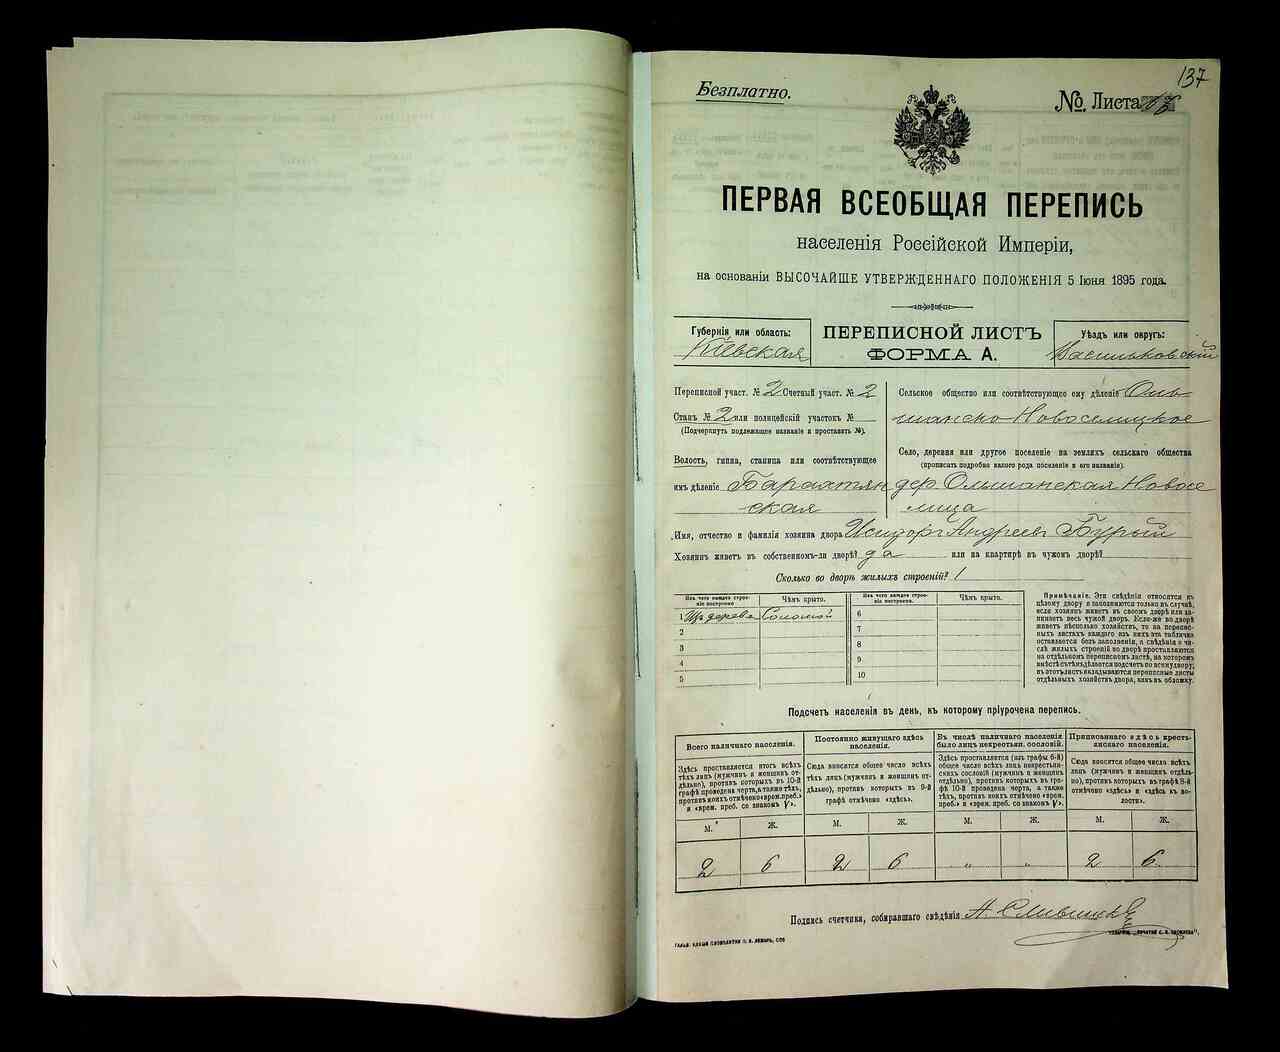 137
Безплатно.
№. Листа
ПЕРВАЯ ВСЕОБЩАЯ ПЕРЕПИСЬ
населенія Россійской Имперіи,
на основаніи ВЫСОЧАЙШЕ УТВЕРЖДЕННАГО ПОЛОЖЕНІЯ 5 Іюня 1895 года.
Губернія или область:
Кіевская
ПЕРЕПИСНОЙ ЛИСТЪ
ФОРМА А.
Уѣздъ или округъ:
Васильковскій
Переписной участ. № 2 Счетный участ. № 2
Станъ № 2 или полицейскій участокъ №
(Подчеркнуть подлежащее названіе и проставить №).
Волость, гмина, станица или соотвѣтствующее
имъ дѣленіе Барахтян
ская
Сельское общество или соотвѣтствующее ему дѣленіе Оль
шанско-Новоселицкое
Село, деревня или другое поселеніе на земляхъ сельскаго общества
(прописать подробно какого рода поселеніе и его названіе).
дер Олшанская Новосе
лица
Имя, отчество и фамилія хозяина двора Исидоръ Андреевъ Бурый
Хозяинъ живетъ въ собственномъ-ли дворѣ? да или на квартирѣ въ чужомъ дворѣ?
Сколько во дворѣ жилыхъ строеній? 1
Изъ чего каждое строеніе построено
Чѣмъ крыто.
Изъ чего каждое строеніе построено
Чѣмъ крыто.
1 Изъ дерева Соломой
2
3
4
5
6
7
8
9
10
Примѣчаніе. Эти свѣдѣнія относятся къ
цѣлому двору и заполняются только въ случаѣ,
если хозяинъ живетъ въ своемъ дворѣ или занимаетъ
весь чужой дворъ. Если-же во дворѣ
живетъ нѣсколько хозяйствъ, то на переписныхъ
листахъ каждаго изъ нихъ эта табличка
оставляется безъ заполненія, а свѣдѣнія о числѣ
жилыхъ строеній во дворѣ проставляются
на отдѣльномъ переписномъ листѣ, на которомъ
вмѣстѣ съ тѣмъ дѣлается подсчетъ по всему двору;
въ этотъ листъ вкладываются переписные листы
отдѣльныхъ хозяйствъ двора, какъ въ обложку.
Подсчетъ населенія въ день, къ которому пріурочена перепись.
Всего наличнаго населенія.
Здѣсь проставляется итогъ всѣхъ
тѣхъ лицъ (мужчинъ и женщинъ отдѣльно),
противъ которыхъ въ 10-й
графѣ проведена черта, а также тѣхъ,
противъ коихъ отмѣчено «врем. преб.»
и «врем. преб. со знакомъ V».
Постоянно живущаго здѣсь
населенія.
Сюда вносятся общее число всѣхъ
тѣхъ лицъ (мужчинъ и женщинъ отдѣльно),
противъ которыхъ въ 9-й
графѣ отмѣчено «здѣсь».
Въ числѣ наличнаго населенія
было лицъ некрестьян. сословій.
Здѣсь проставляется (изъ графы 6-й)
общее число всѣхъ лицъ некрестьянскихъ
сословій (мужчинъ и женщинъ
отдѣльно), противъ которыхъ въ графѣ
10-й проведена черта, а также
тѣхъ, противъ коихъ отмѣчено «врем.
преб.» и «врем. преб. со знакомъ V».
Приписаннаго здѣсь крестьянскаго
населенія.
Сюда вносятся общее число всѣхъ
лицъ (мужчинъ и женщинъ отдѣльно),
противъ которыхъ въ графѣ 8-й
отмѣчено «здѣсь» и «здѣсь къ волости».
М. Ж. М. Ж. М. Ж. М. Ж.
2 6 2 6 „ „ 2 6
Подпись счетчика, собиравшаго свѣдѣнія А.